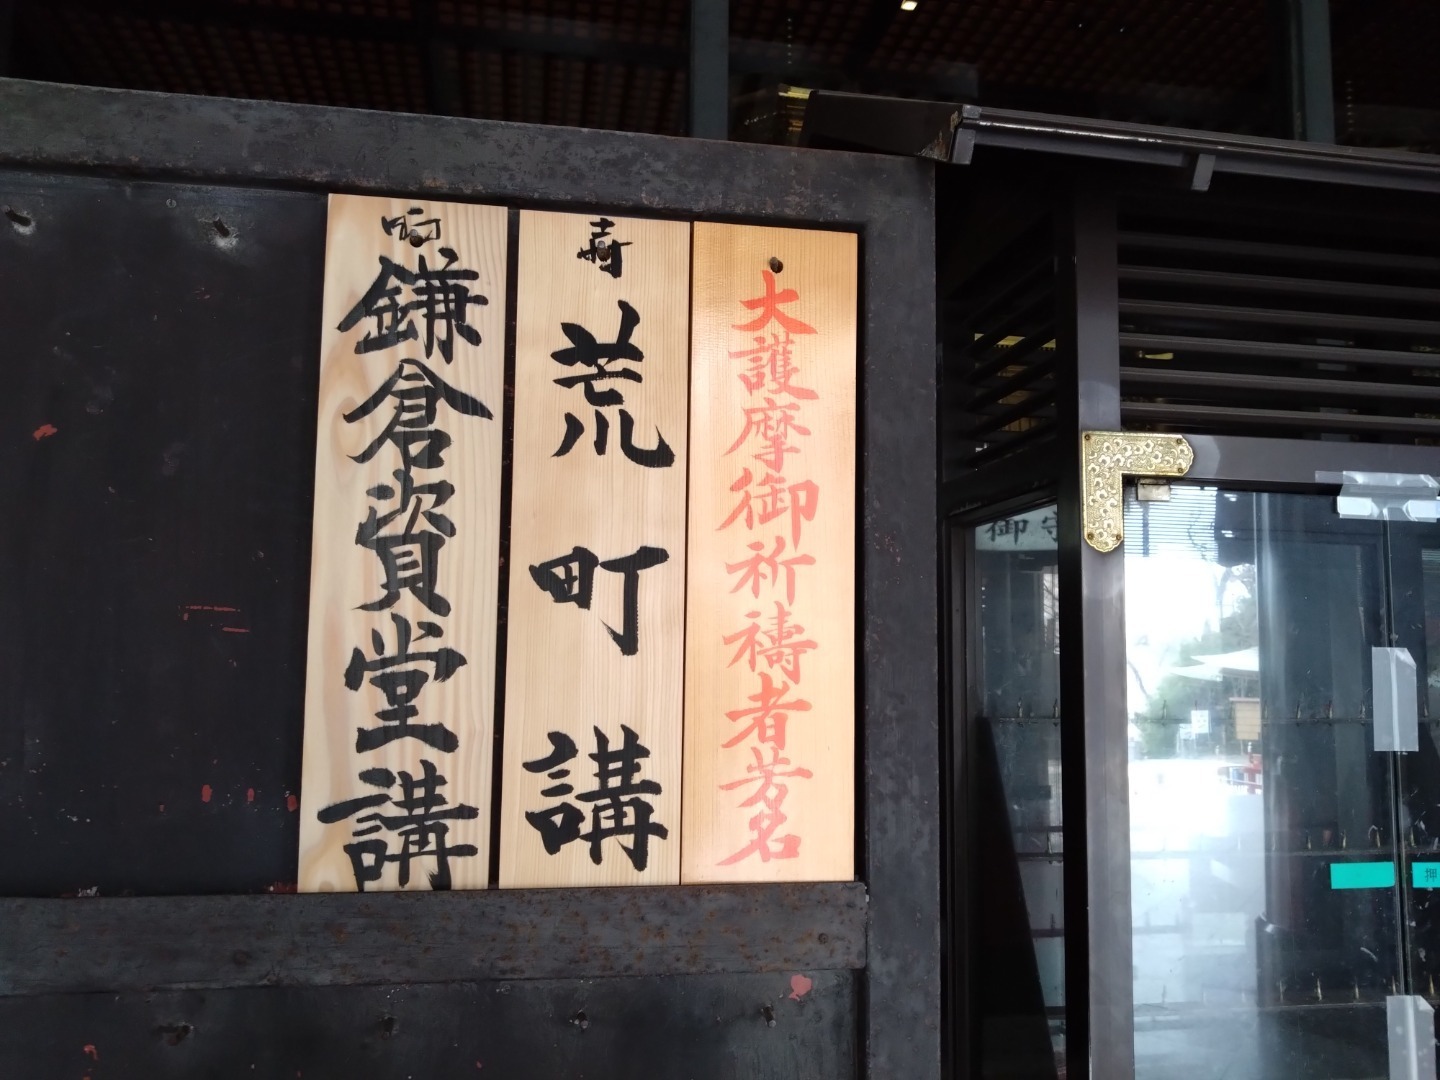 大護摩御祈禱者芳名
寿
荒町講
鎌倉資堂講
御守
押